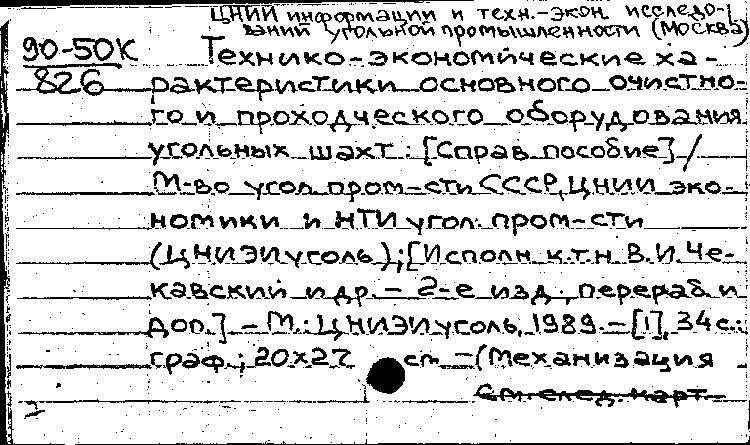 ЦНИИ информации и техн.-экон. исследо-
ваний угольной промышленности (Москва)
90-50К Технико-экономические ха-
826 рактеристики основного очистно-
го и проходческого оборудования
угольных шахт : [Справ. пособие] /
М-во угол. пром-сти СССР, ЦНИИ эко-
номики и НТИ угол. пром-сти
(ЦНИЭИуголь) ; [Исполн. к.т.н. В.И. Че-
кавский и др. – 2-е изд., перераб. и
доп.] – М. : ЦНИЭИуголь, 1989. – [1], 34 с. :
граф. ; 20х27 см – (Механизация
См. след. карт.